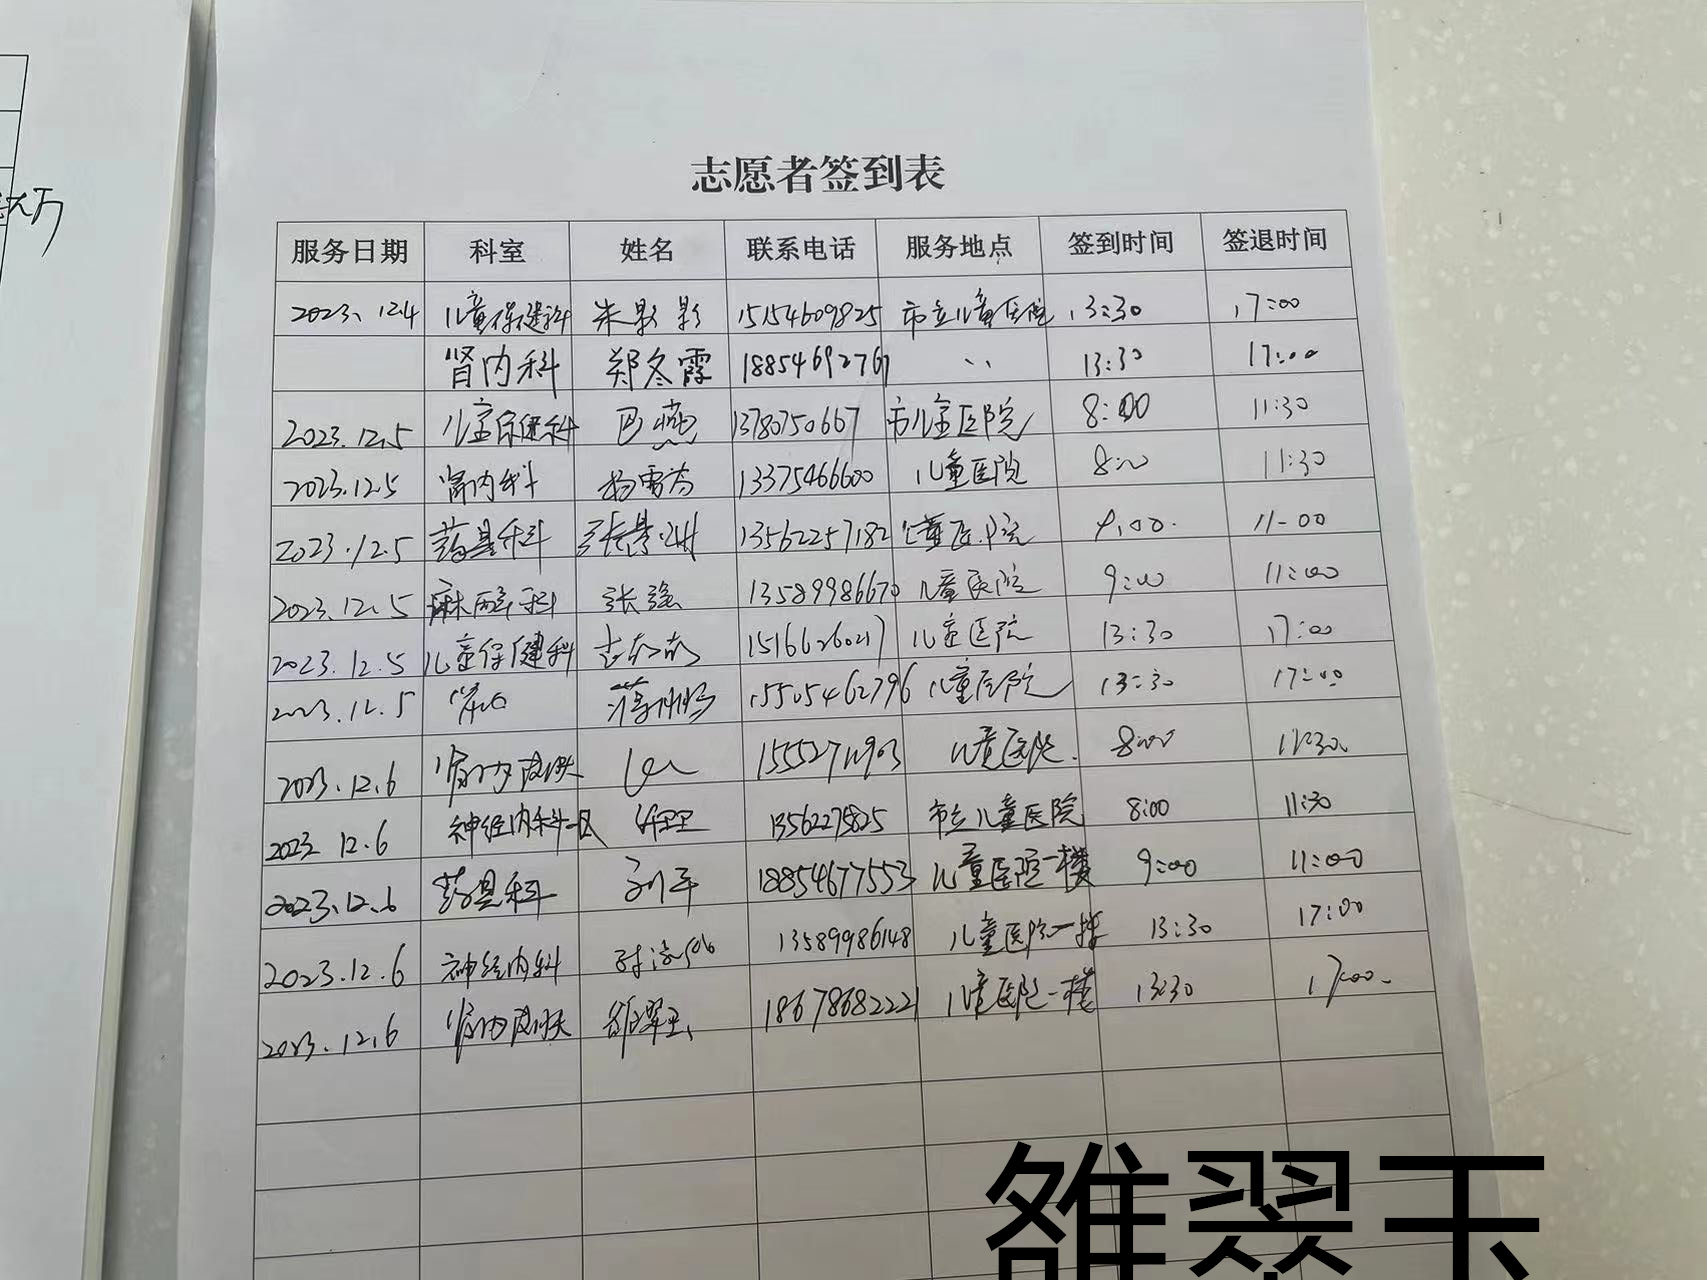 志愿者签到表
服务日期 科室 姓名 联系电话 服务地点 签到时间 签退时间
2023.12.4 儿童保健科 朱影影 15154609825 市立儿童医院 13:30 17:00
肾内科 郑冬霞 18854692767 〃 13:30 17:00
2023.12.5 儿童保健科 巴燕 13780750667 市儿童医院 8:00 11:30
2023.12.5 肾内科 杨雪芬 13375466600 儿童医院 8:00 11:30
2023.12.5 药具科 张景洲 13562257182 儿童医院 9:00 11-00
2023.12.5 麻醉科 张强 13589986670 儿童医院 9:00 11:00
2023.12.5 儿童保健科 15166260217 儿童医院 13:30 17:00
2023.12.5 肾内 15505462796 儿童医院 13:30 17:00
2023.12.6 肾内皮肤 15552711903 儿童医院 8:00 11:30
2023.12.6 神经内科一区 13562275825 市立儿童医院 8:00 11:30
2023.12.6 药具科 18854677553 儿童医院一楼 9:00 11:00
2023.12.6 神经内科 13589986148 儿童医院一楼 13:30 17:00
2023.12.6 肾内皮肤 翠玉 18678682221 儿童医院一楼 13:30 17:00